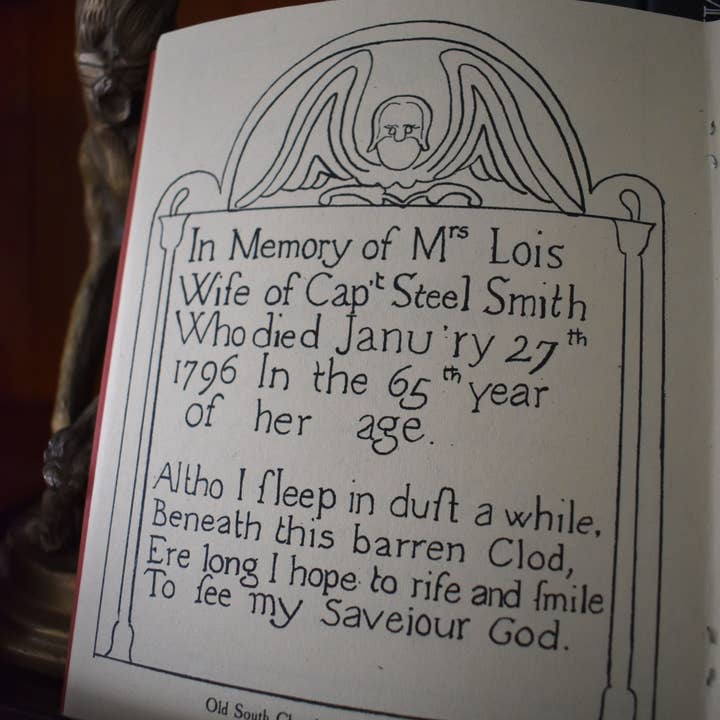 In Memory of Mrs Lois
Wife of Cap't Steel Smith
Who died Janu'ry 27th
1796 In the 65th year
of her age.
Altho I ſleep in duſt a while,
Beneath this barren Clod,
Ere long I hope to riſe and ſmile
To ſee my Saveiour God.
Old South